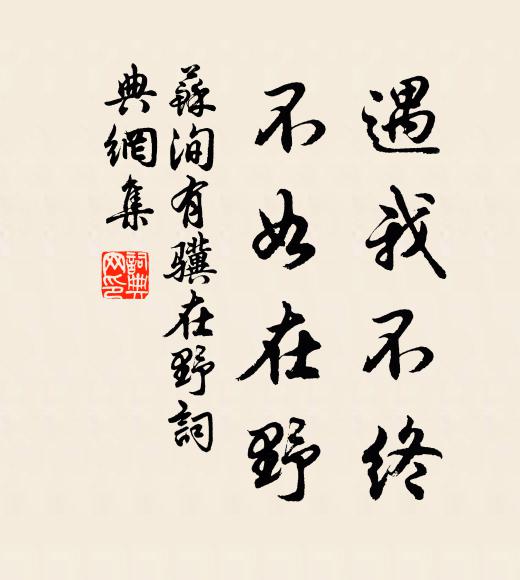 遇我不終
不如在野
蘇洵有驥在野詞
典網集
詞典
网印